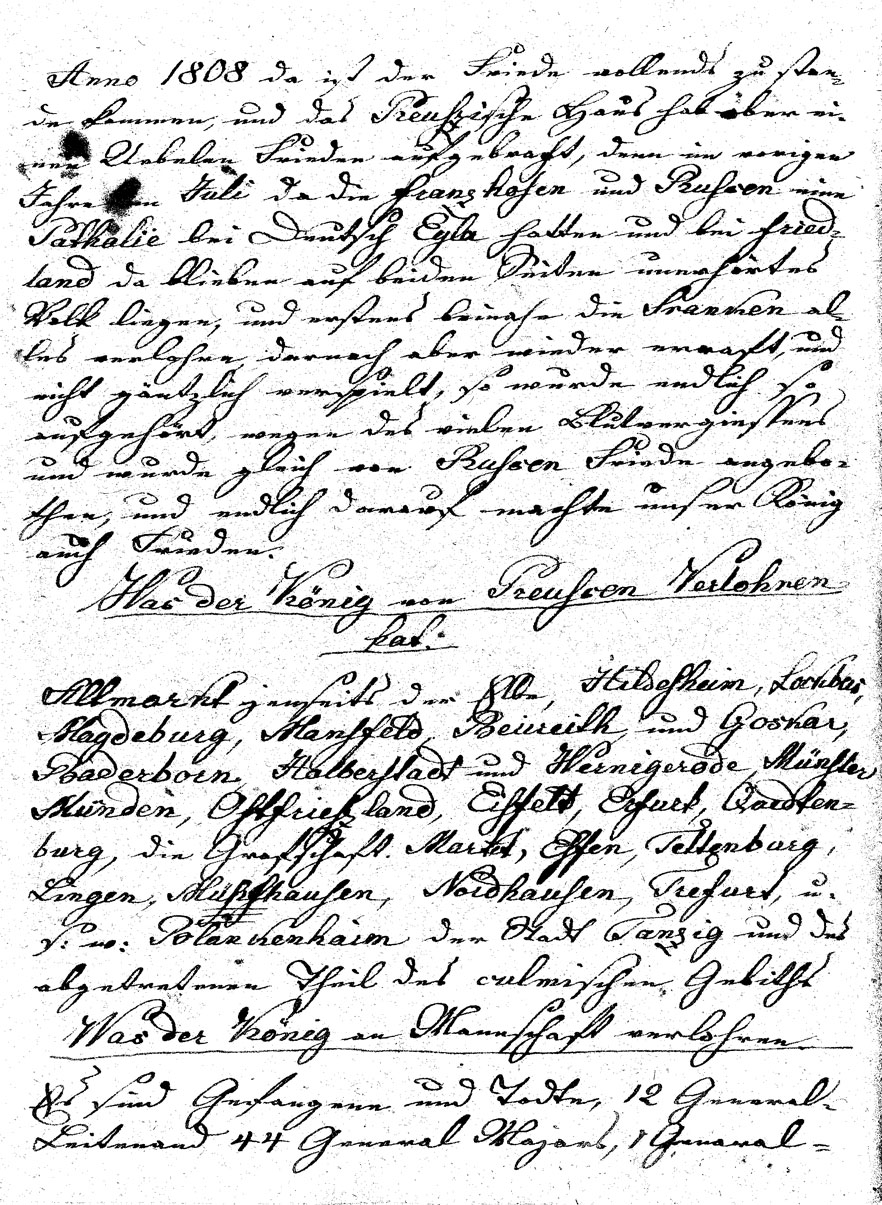 Anno 1808 da ist der Friede vollends zu stan-
de kommen, und das Preußische Haus hat über ei-
nen Uebelen Frieden aufgebraft, denn im vorigen
Jahre im Juli da die Franzhosen und Russen eine
Pathalie bei Deutsch Eyla hatten und bei Fried-
land da blieben auf beiden Seiten unerhörtes
Volk liegen, und erstens beinahe die Franken al-
les verlohren, darnach aber wieder erraft, und
nicht gäntzlich verspielt, so wurde endlich so
aufgehört, wegen des vielen Blutvergiessens
und wurde gleich von Russen Friede angebo-
then, und endlich darauf machte unser König
auch Frieden.
Was der König von Preussen Verlohren
hat:
Altmarkt jenseits der Elbe, Hildesheim, Lockbus,
Magdeburg, Mansfeld, Beiureith, und Goskar,
Paderborn, Halberstadt und Wernigerode, Münster
Münden, Ostfriesland, Eisfelt, Erfurt, Quedten-
burg, die Grafschaft. Markt, Essen, Tettenburg,
Lingen, Mühlhausen, Nordhausen, Trefurt, u.
s: w: Polankenhaim der Stadt Tanzig und des
abgetretenen Theil des culmischen Gebiths
Was der König an Mannschaft verlohren
Es sind Gefangene und Todte, 12 General-
Leitenand 44 General Majors, 1 General-